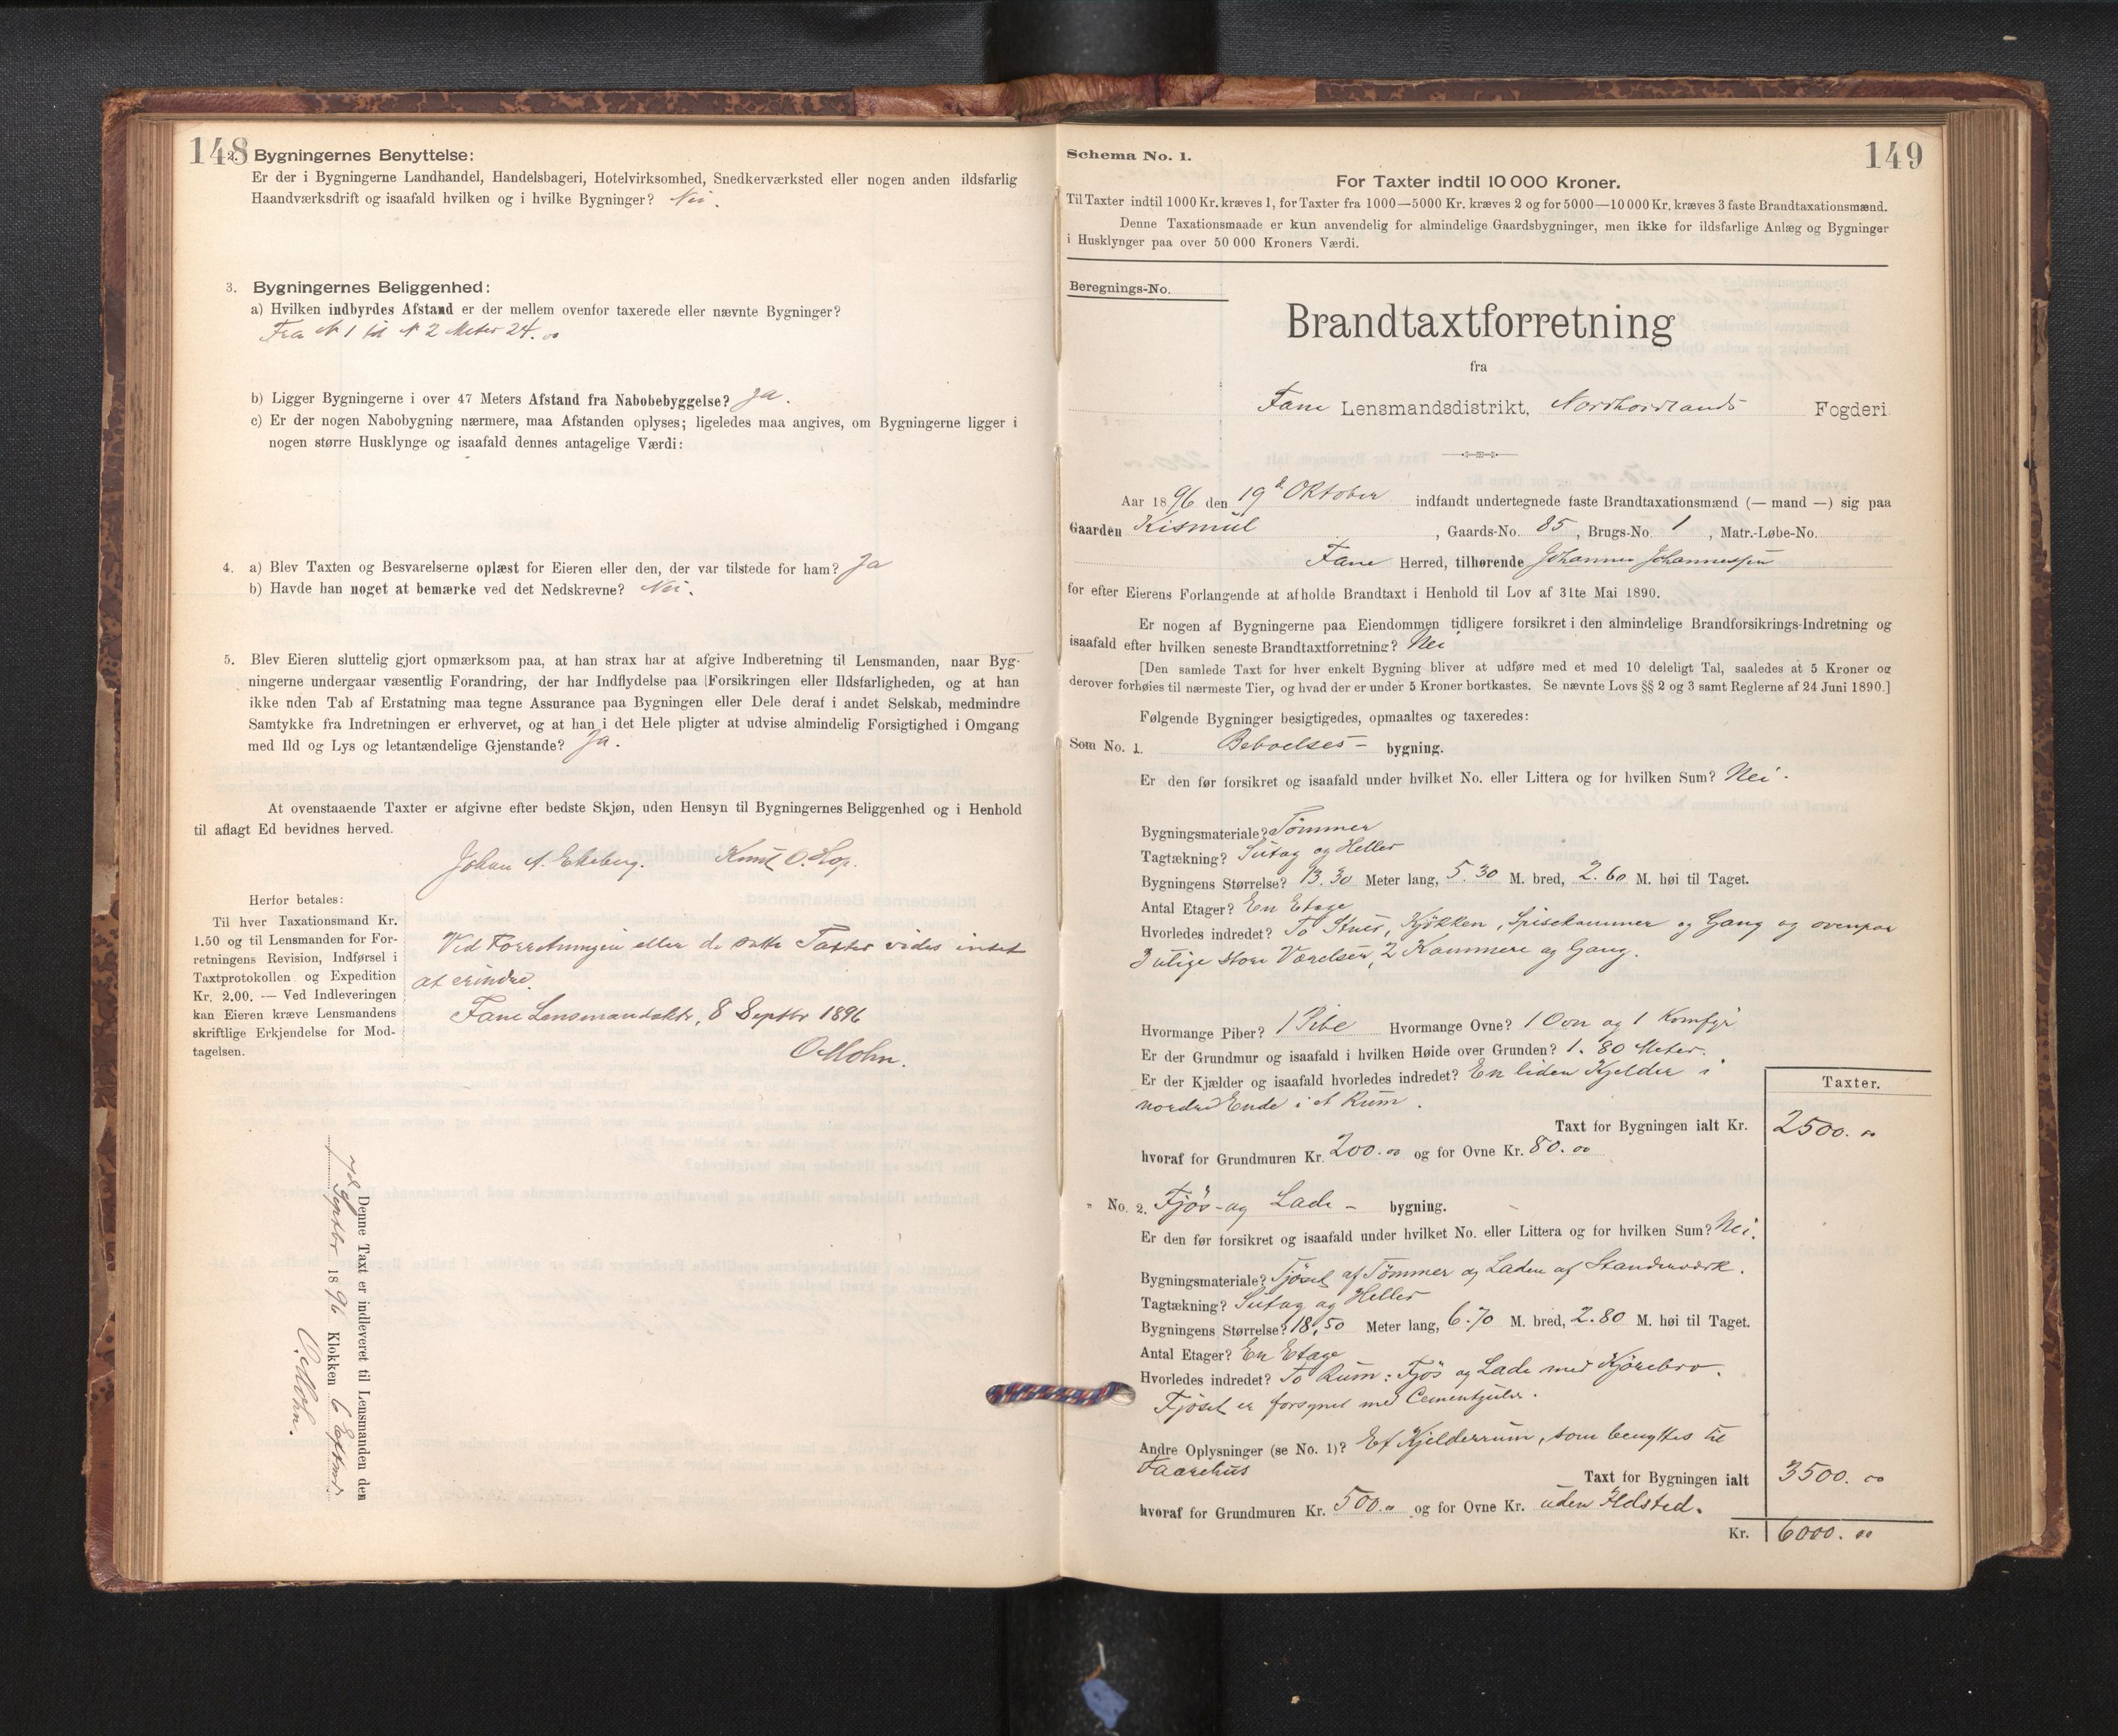 148
2. Bygningernes Benyttelse:
Er der i Bygningerne Landhandel, Handelsbageri, Hotelvirksomhed, Snedkerværksted eller nogen anden ildsfarlig
Haandværksdrift og isaafald hvilken og i hvilke Bygninger? Nei.
3. Bygningernes Beliggenhed:
a) Hvilken indbyrdes Afstand er der mellem ovenfor taxerede eller nævnte Bygninger?
Fra N 1 til N 2 Meter 24.00
b) Ligger Bygningerne i over 47 Meters Afstand fra Nabobebyggelse? Ja.
c) Er der nogen Nabobygning nærmere, maa Afstanden oplyses; ligeledes maa angives, om Bygningerne ligger i
nogen større Husklynge og isaafald dennes antagelige Værdi:
4. a) Blev Taxten og Besvarelserne oplæst for Eieren eller den, der var tilstede for ham? Ja
b) Havde han noget at bemærke ved det Nedskrevne? Nei.
5. Blev Eieren sluttelig gjort opmærksom paa, at han strax har at afgive Indberetning til Lensmanden, naar Byg-
ningerne undergaar væsentlig Forandring, der har Indflydelse paa Forsikringen eller Ildsfarligheden, og at han
ikke uden Tab af Erstatning maa tegne Assurance paa Bygningen eller Dele deraf i andet Selskab, medmindre
Samtykke fra Indretningen er erhvervet, og at han i det Hele pligter at udvise almindelig Forsigtighed i Omgang
med Ild og Lys og letantændelige Gjenstande? Ja.
At ovenstaaende Taxter er afgivne efter bedste Skjøn, uden Hensyn til Bygningernes Beliggenhed og i Henhold
til aflagt Ed bevidnes herved.
Johan A. Ekeberg. Knut O. Hop.
Herfor betales:
Til hver Taxationsmand Kr.
1.50 og til Lensmanden for For-
retningens Revision, Indførsel i
Taxtprotokollen og Expedition
Kr. 2.00. — Ved Indleveringen
kan Eieren kræve Lensmandens
skriftlige Erkjendelse for Mod-
tagelsen.
Ved Forretningen eller de satte Taxter vides intet
at erindre.
Fane Lensmandsktr, 8 Septbr 1896
O Mohn.
Denne Taxt er indleveret til Lensmanden den
7de Septbr 1896 Klokken 6 Eftmd.
O. Mohn.
149
Schema No. 1.
For Taxter indtil 10 000 Kroner.
Til Taxter indtil 1000 Kr. kræves 1, for Taxter fra 1000—5000 Kr. kræves 2 og for 5000—10 000 Kr. kræves 3 faste Brandtaxationsmænd.
Denne Taxationsmaade er kun anvendelig for almindelige Gaardsbygninger, men ikke for ildsfarlige Anlæg og Bygninger
i Husklynger paa over 50 000 Kroners Værdi.
Beregnings-No.
Brandtaxtforretning
fra
Fane Lensmandsdistrikt, Nordhordlands Fogderi
Aar 1896 den 19d Oktober indfandt undertegnede faste Brandtaxationsmænd (— mand —) sig paa
Gaarden Kismul, Gaards-No. 85, Brugs-No. 1, Matr.-Løbe-No.
Fane Herred, tilhørende Johannes Johannessen
for efter Eierens Forlangende at afholde Brandtaxt i Henhold til Lov af 31te Mai 1890.
Er nogen af Bygningerne paa Eiendommen tidligere forsikret i den almindelige Brandforsikrings-Indretning og
isaafald efter hvilken seneste Brandtaxtforretning? Nei
[Den samlede Taxt for hver enkelt Bygning bliver at udføre med et med 10 deleligt Tal, saaledes at 5 Kroner og
derover forhøies til nærmeste Tier, og hvad der er under 5 Kroner bortkastes. Se nævnte Lovs §§ 2 og 3 samt Reglerne af 24 Juni 1890.]
Følgende Bygninger besigtigedes, opmaaltes og taxeredes:
Som No. 1. Beboelses- bygning.
Er den før forsikret og isaafald under hvilket No. eller Littera og for hvilken Sum? Nei.
Bygningsmateriale? Tømmer
Tagtækning? Sutag og Heller
Bygningens Størrelse? 13.30 Meter lang, 5.30 M. bred, 2.60 M. høi til Taget.
Antal Etager? En Etage
Hvorledes indredet? To Stuer, Kjøkken, Spisekammer og Gang og ovenpaa
3 utige store Værelser, 2 Kammere og Gang.
Hvormange Piber? 1 Pibe Hvormange Ovne? 1 Ovn og 1 Komfyr
Er der Grundmur og isaafald i hvilken Høide over Grunden? 1.80 Meter.
Er der Kjælder og isaafald hvorledes indredet? En liden Kjelder i
nordre Ende i et Rum.
Taxter.
Taxt for Bygningen ialt Kr. 2500.00
hvoraf for Grundmuren Kr. 200.00 og for Ovne Kr. 80.00
" No. 2. Fjøs- og Lade- bygning.
Er den før forsikret og isaafald under hvilket No. eller Littera og for hvilken Sum? Nei.
Bygningsmateriale? Fjøset af Tømmer og Laden af Standerværk.
Tagtækning? Sutag og Heller
Bygningens Størrelse? 18,50 Meter lang, 6.70 M. bred, 2.80 M. høi til Taget.
Antal Etager? En Etage
Hvorledes indredet? To Rum: Fjøs og Lade med Kjørebro.
Fjøset er forsynet med Cementgulv.
Andre Oplysninger (se No. 1)? Et Kjelderrum, som benyttes til
Faarehus
Taxt for Bygningen ialt 3500.00
hvoraf for Grundmuren Kr. 500.00 og for Ovne Kr. uden Ildsted.
Kr. 6000.00